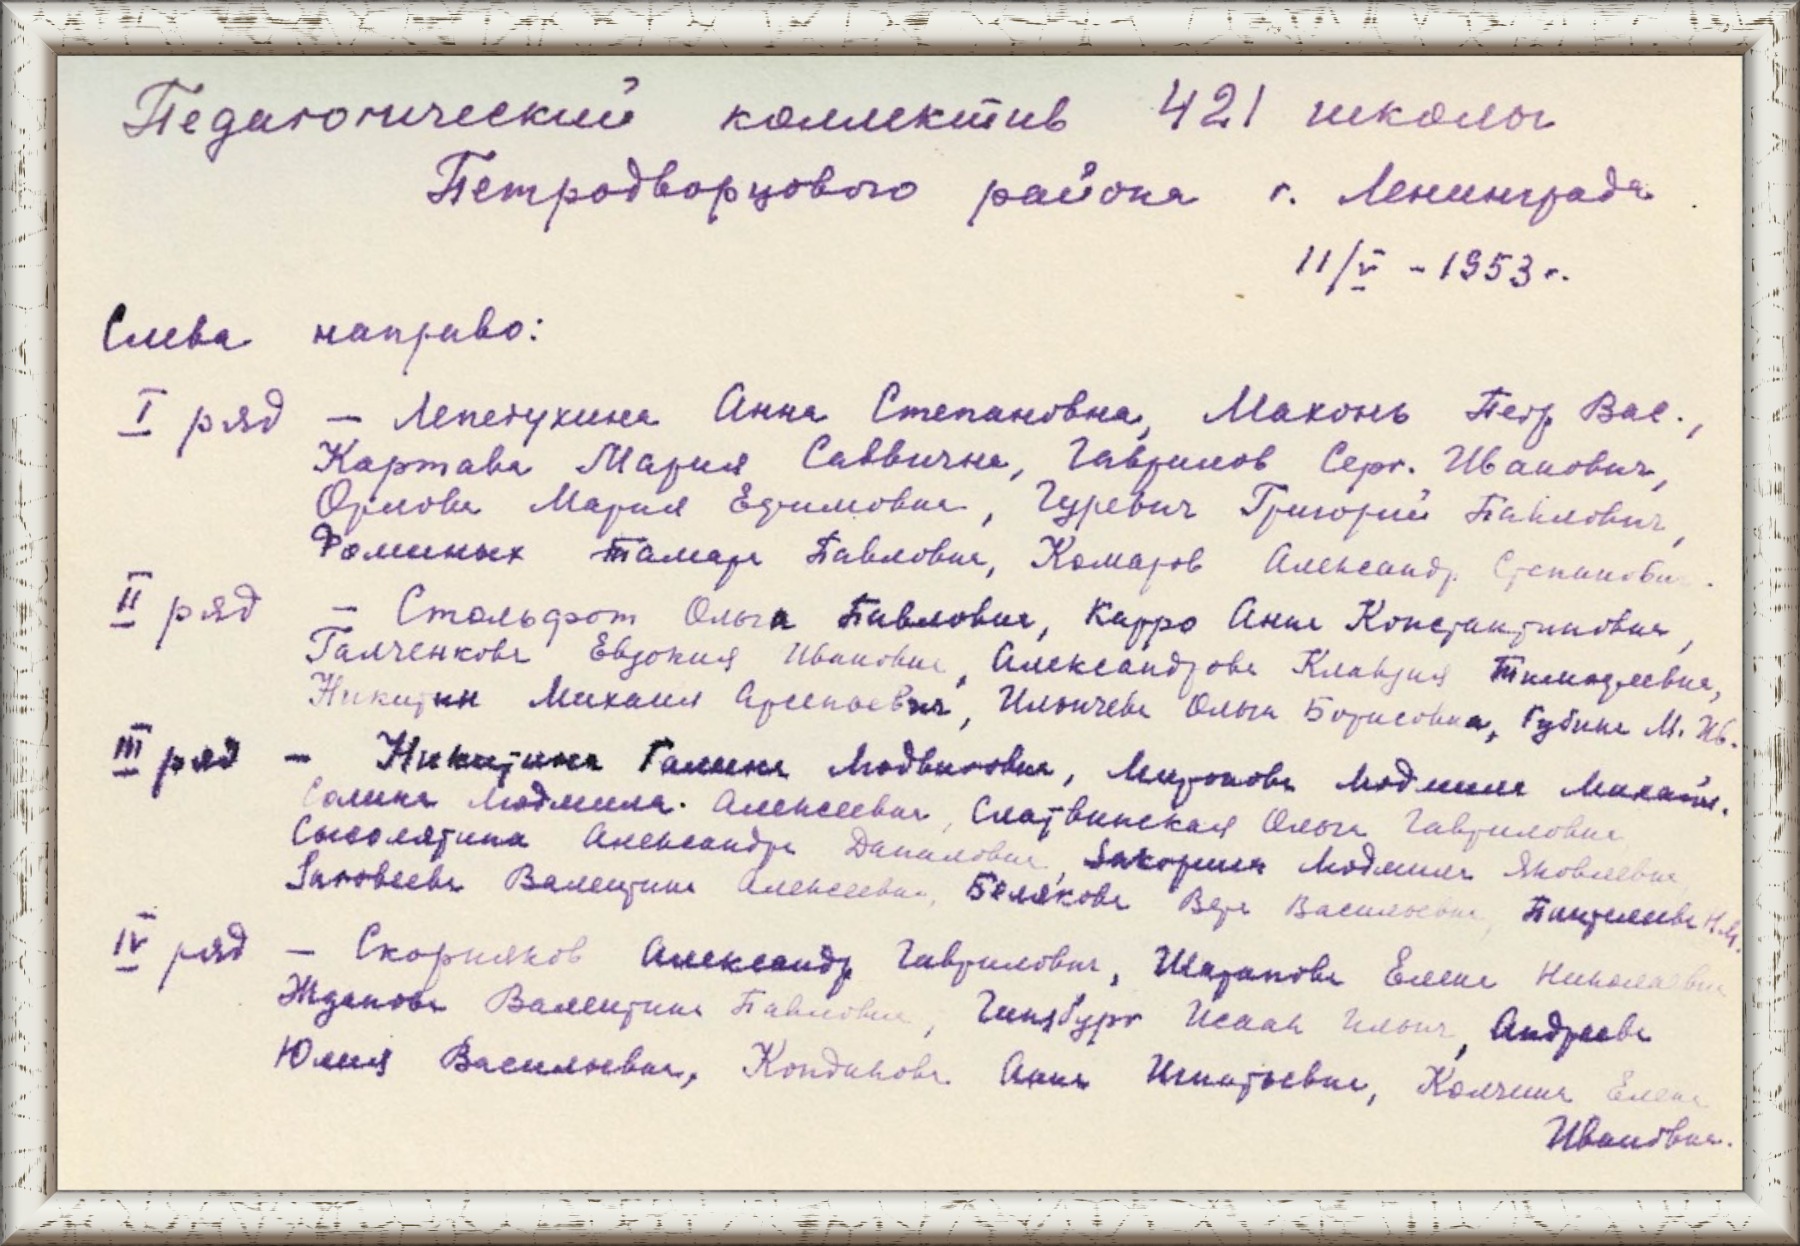 Педагогический коллектив 421 школы
Петродворцового района г. Ленинграда.
11/V - 1953 г.
Слева направо:
I ряд - Лепетухина Анна Степановна, Махонь Петр Вас.,
Картава Мария Саввична, Гаврилов Серг. Иванович,
Орлова Мария Ефимовна, Гуревич Григорий Павлович,
Фоминых Тамара Павловна, Комаров Александр Степанович.
II ряд - Стольфот Ольга Павловна, Карро Анна Константиновна,
Галченкова Евдокия Ивановна, Александрова Клавдия Тимофеевна,
Никитин Михаил Арсеньевич, Ильичева Ольга Борисовна, Губина М. Ив.
III ряд - Никитина Галина Людвиговна, Митрокова Людмила Михайл.
Солина Людмила Алексеевна, Слатвинская Ольга Гавриловна,
Сысолятина Александра Даниловна, Захорина Людмила Яковлевна,
Заговеева Валентина Алексеевна, Белякова Вера Васильевна, Пантелеева Н.М.
IV ряд - Скорняков Александр Гаврилович, Шарапова Елена Николаевна
Жданова Валентина Павловна, Гинзбург Исаак Ильич, Андреева
Юлия Васильевна, Кондакова Анна Игнатьевна, Колчина Елена
Ивановна.